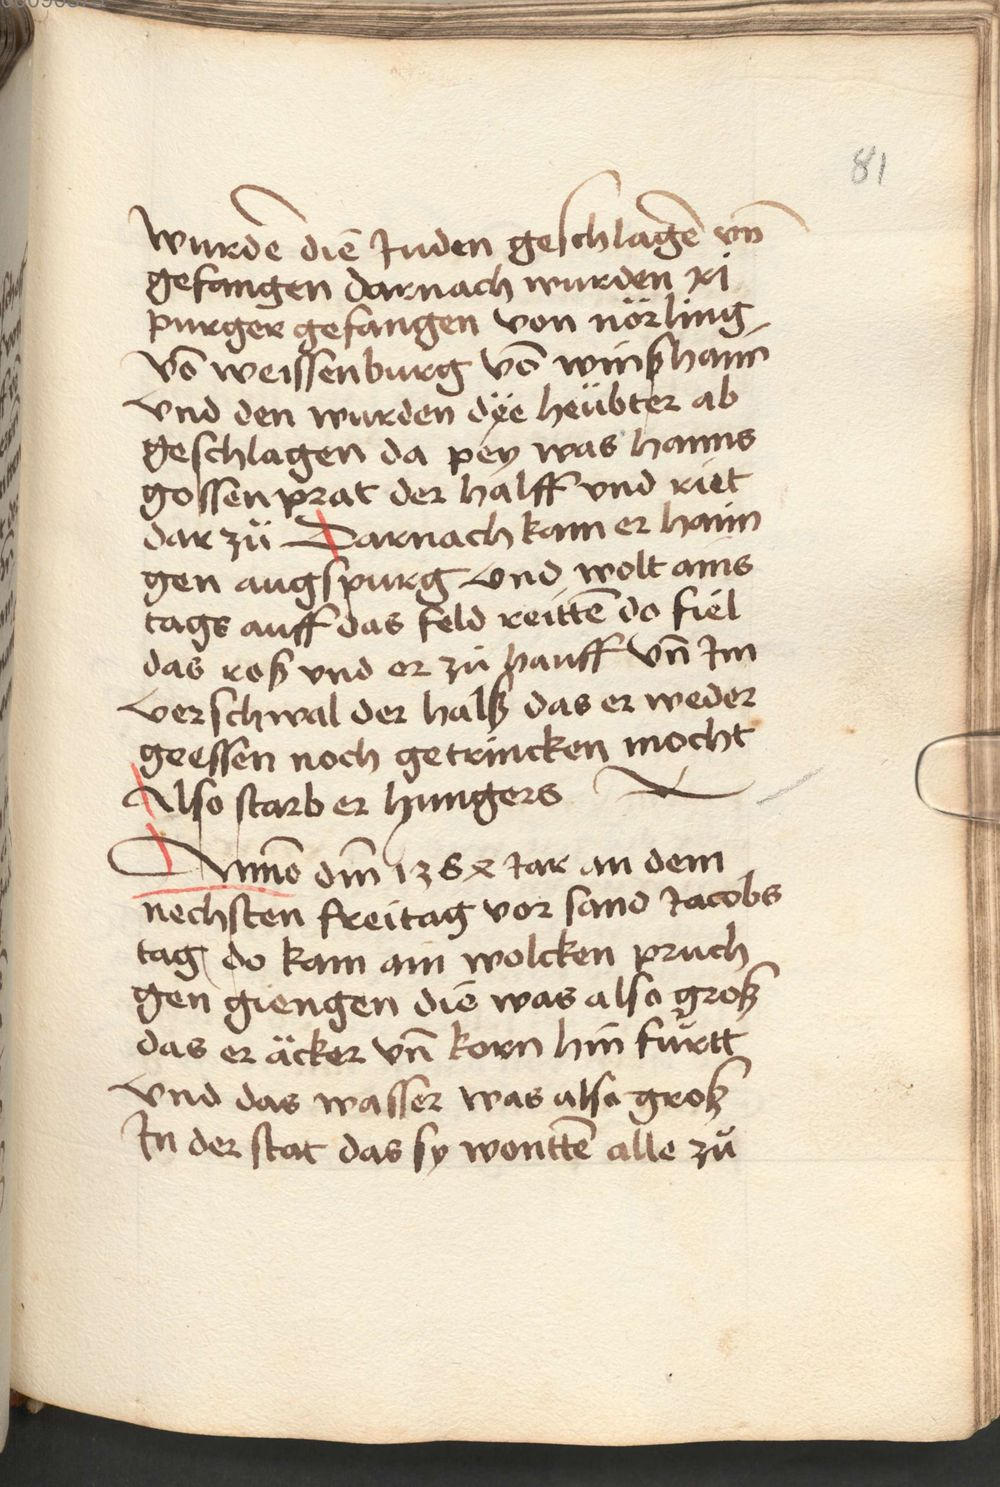 81
wurdē die Juden geschlagē vn̄
gefangen darnach wurden xi
purger gefangen von nörling
vō weissenburg vō winßhaim
vnd den wurden dÿe heübter ab
geschlagen da pey was hanns
gossenprat der halff vnd riet
dar zü Darnach kam er haim
gen augspurg vnd wolt ains
tags auff das feld reittē do fiel
das roß vnd er zů hauff vn̄ Im
verschwal der halß das er weder
geessen noch getrincken mocht
Also starb er hungers
Anno dm̄ Jar an dem
nechsten freitag vor sand Jacobs
tag do kam ain wolcken pruch
gen giengen die was also groß
das er äcker vn̄ korn hin fůrtt
vnd das wasser was also groß
In der stat das sy wonttē alle zů